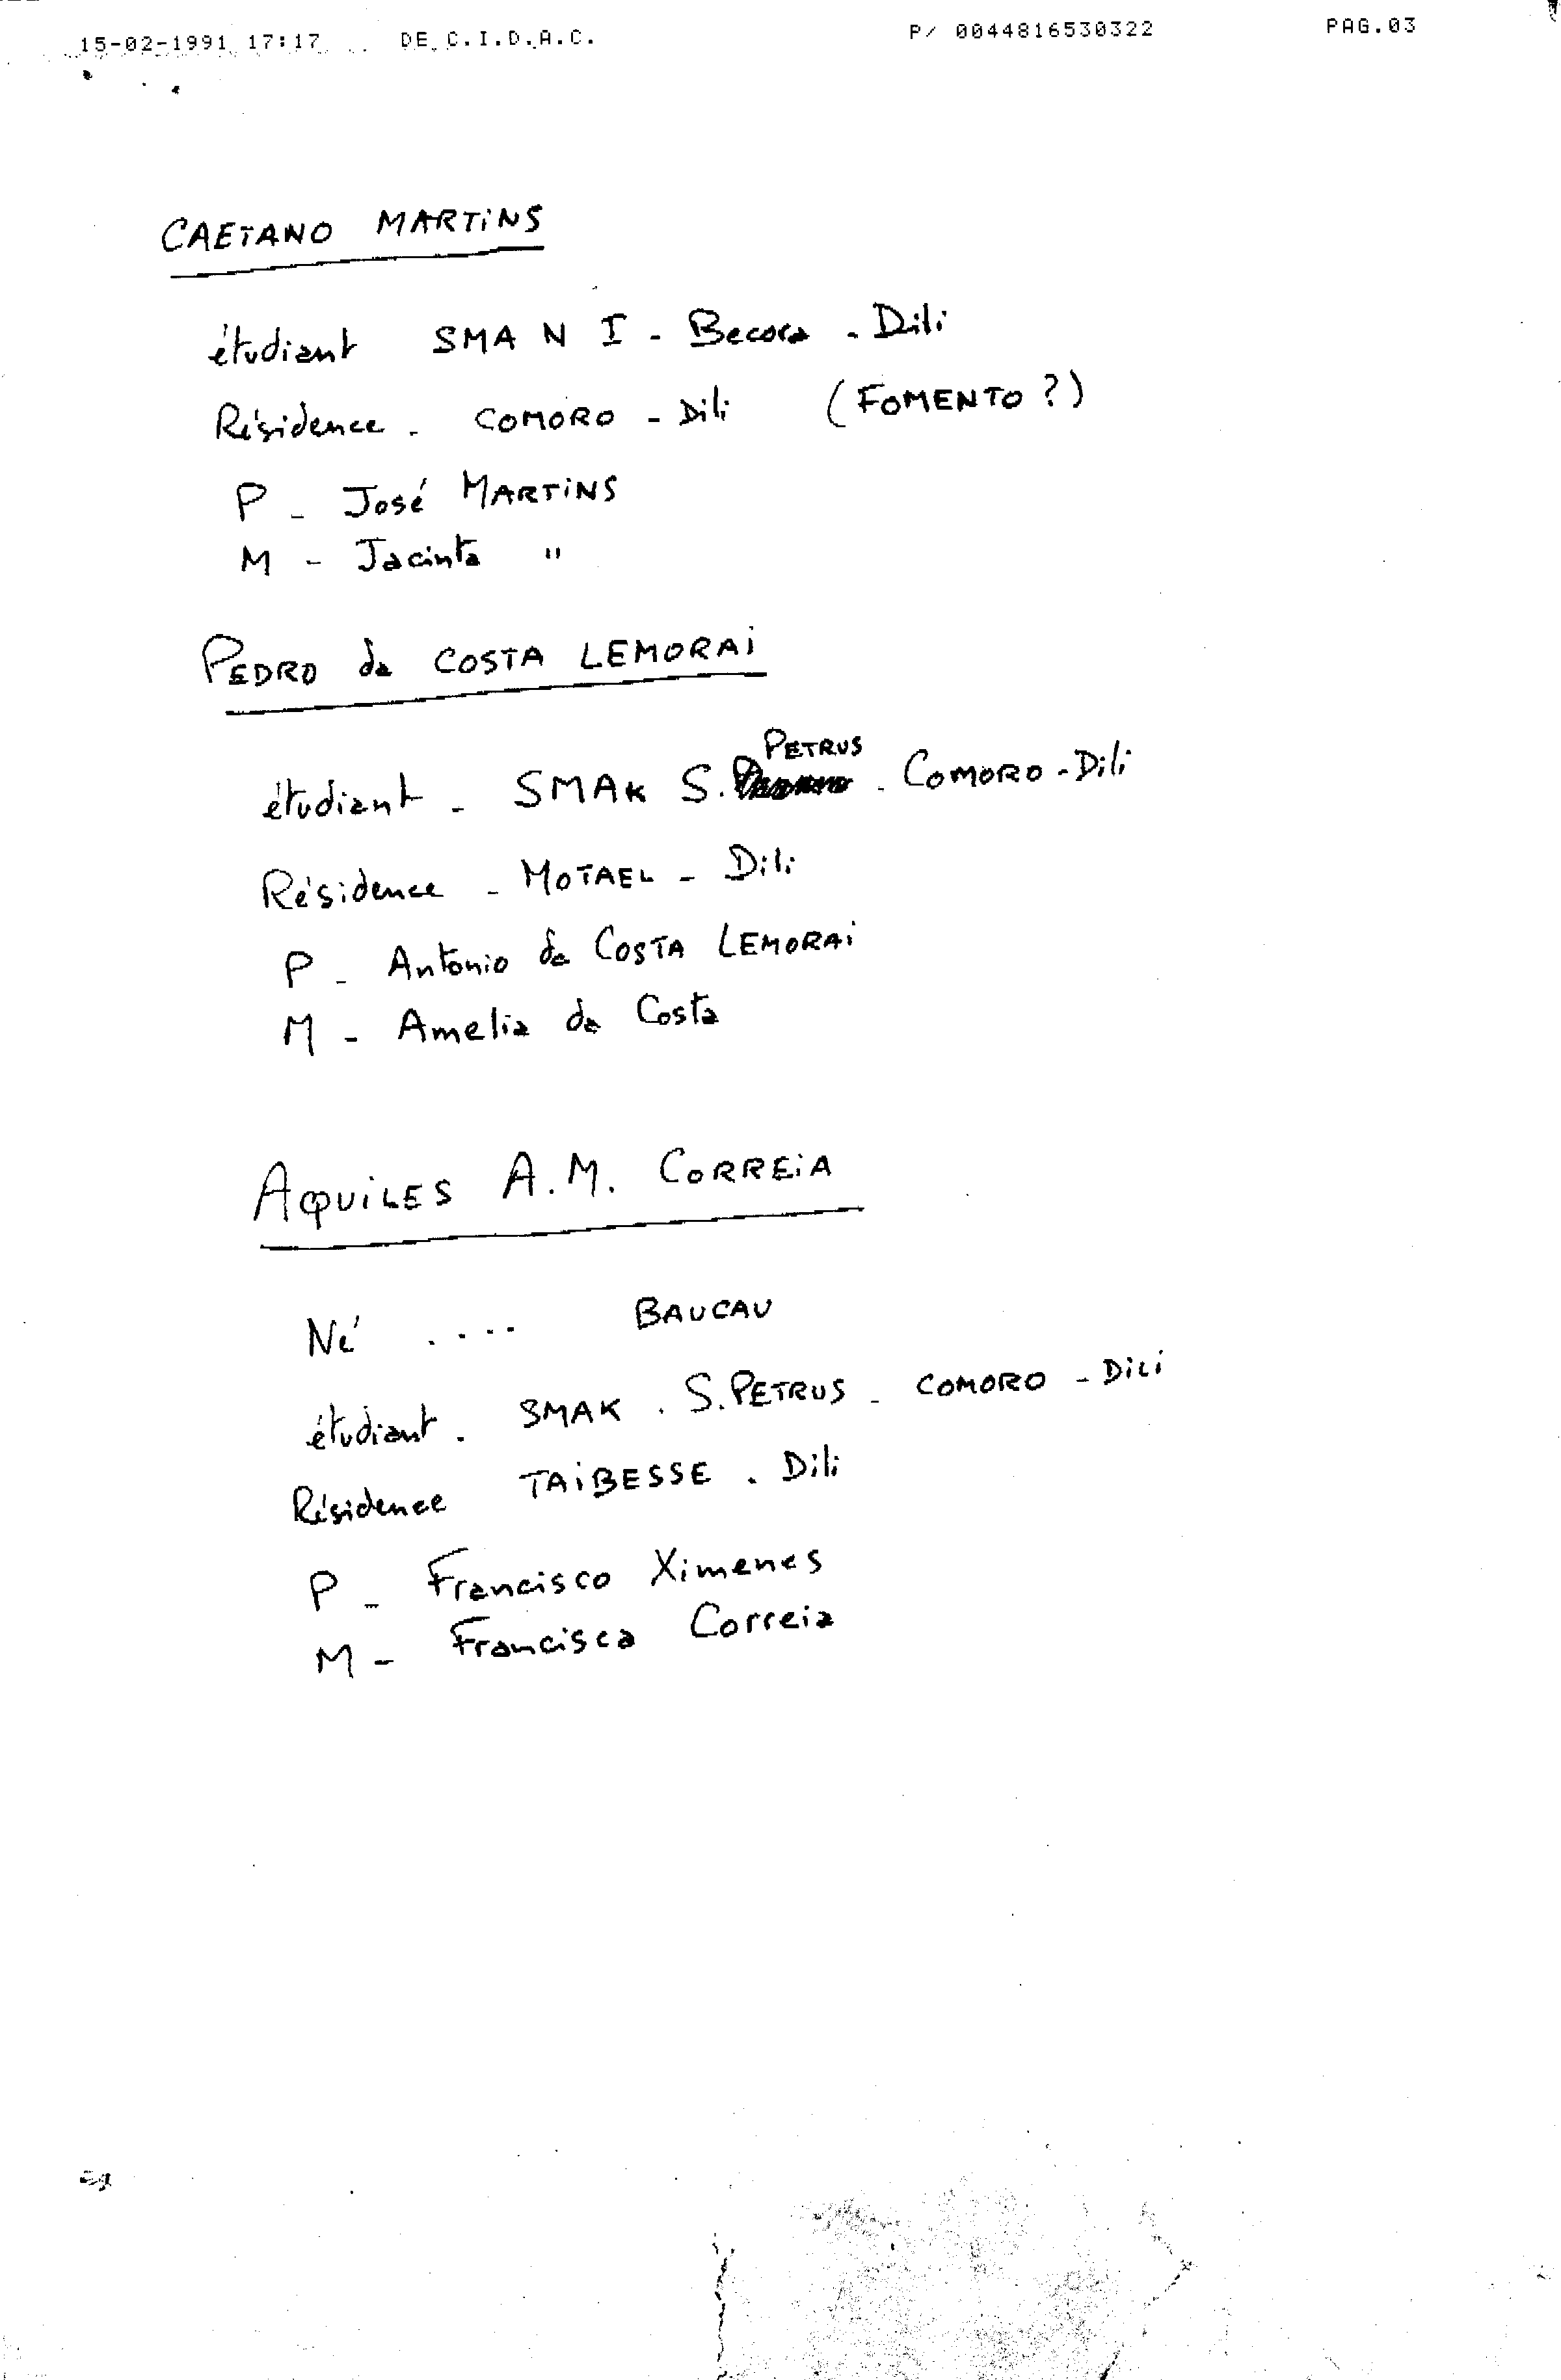 15-02-1991 17:17 DE C.I.D.A.C. P/ 0044816530322 PAG.03
CAETANO MARTINS
étudiant SMA N I - Becora - Dili
Résidence - COMORO - Dili (FOMENTO ?)
P - José MARTINS
M - Jacinta "
PEDRO da COSTA LEMORAI
PETRUS
étudiant - SMAK S. - COMORO - Dili
Résidence - MOTAEL - Dili
P - Antonio da COSTA LEMORAI
M - Amelia da Costa
AQUILES A.M. CORREIA
Né .... BAUCAU
étudiant. SMAK . S.PETRUS - COMORO - DILI
Résidence TAIBESSE . Dili
P - Francisco Ximenes
M - Francisca Correia